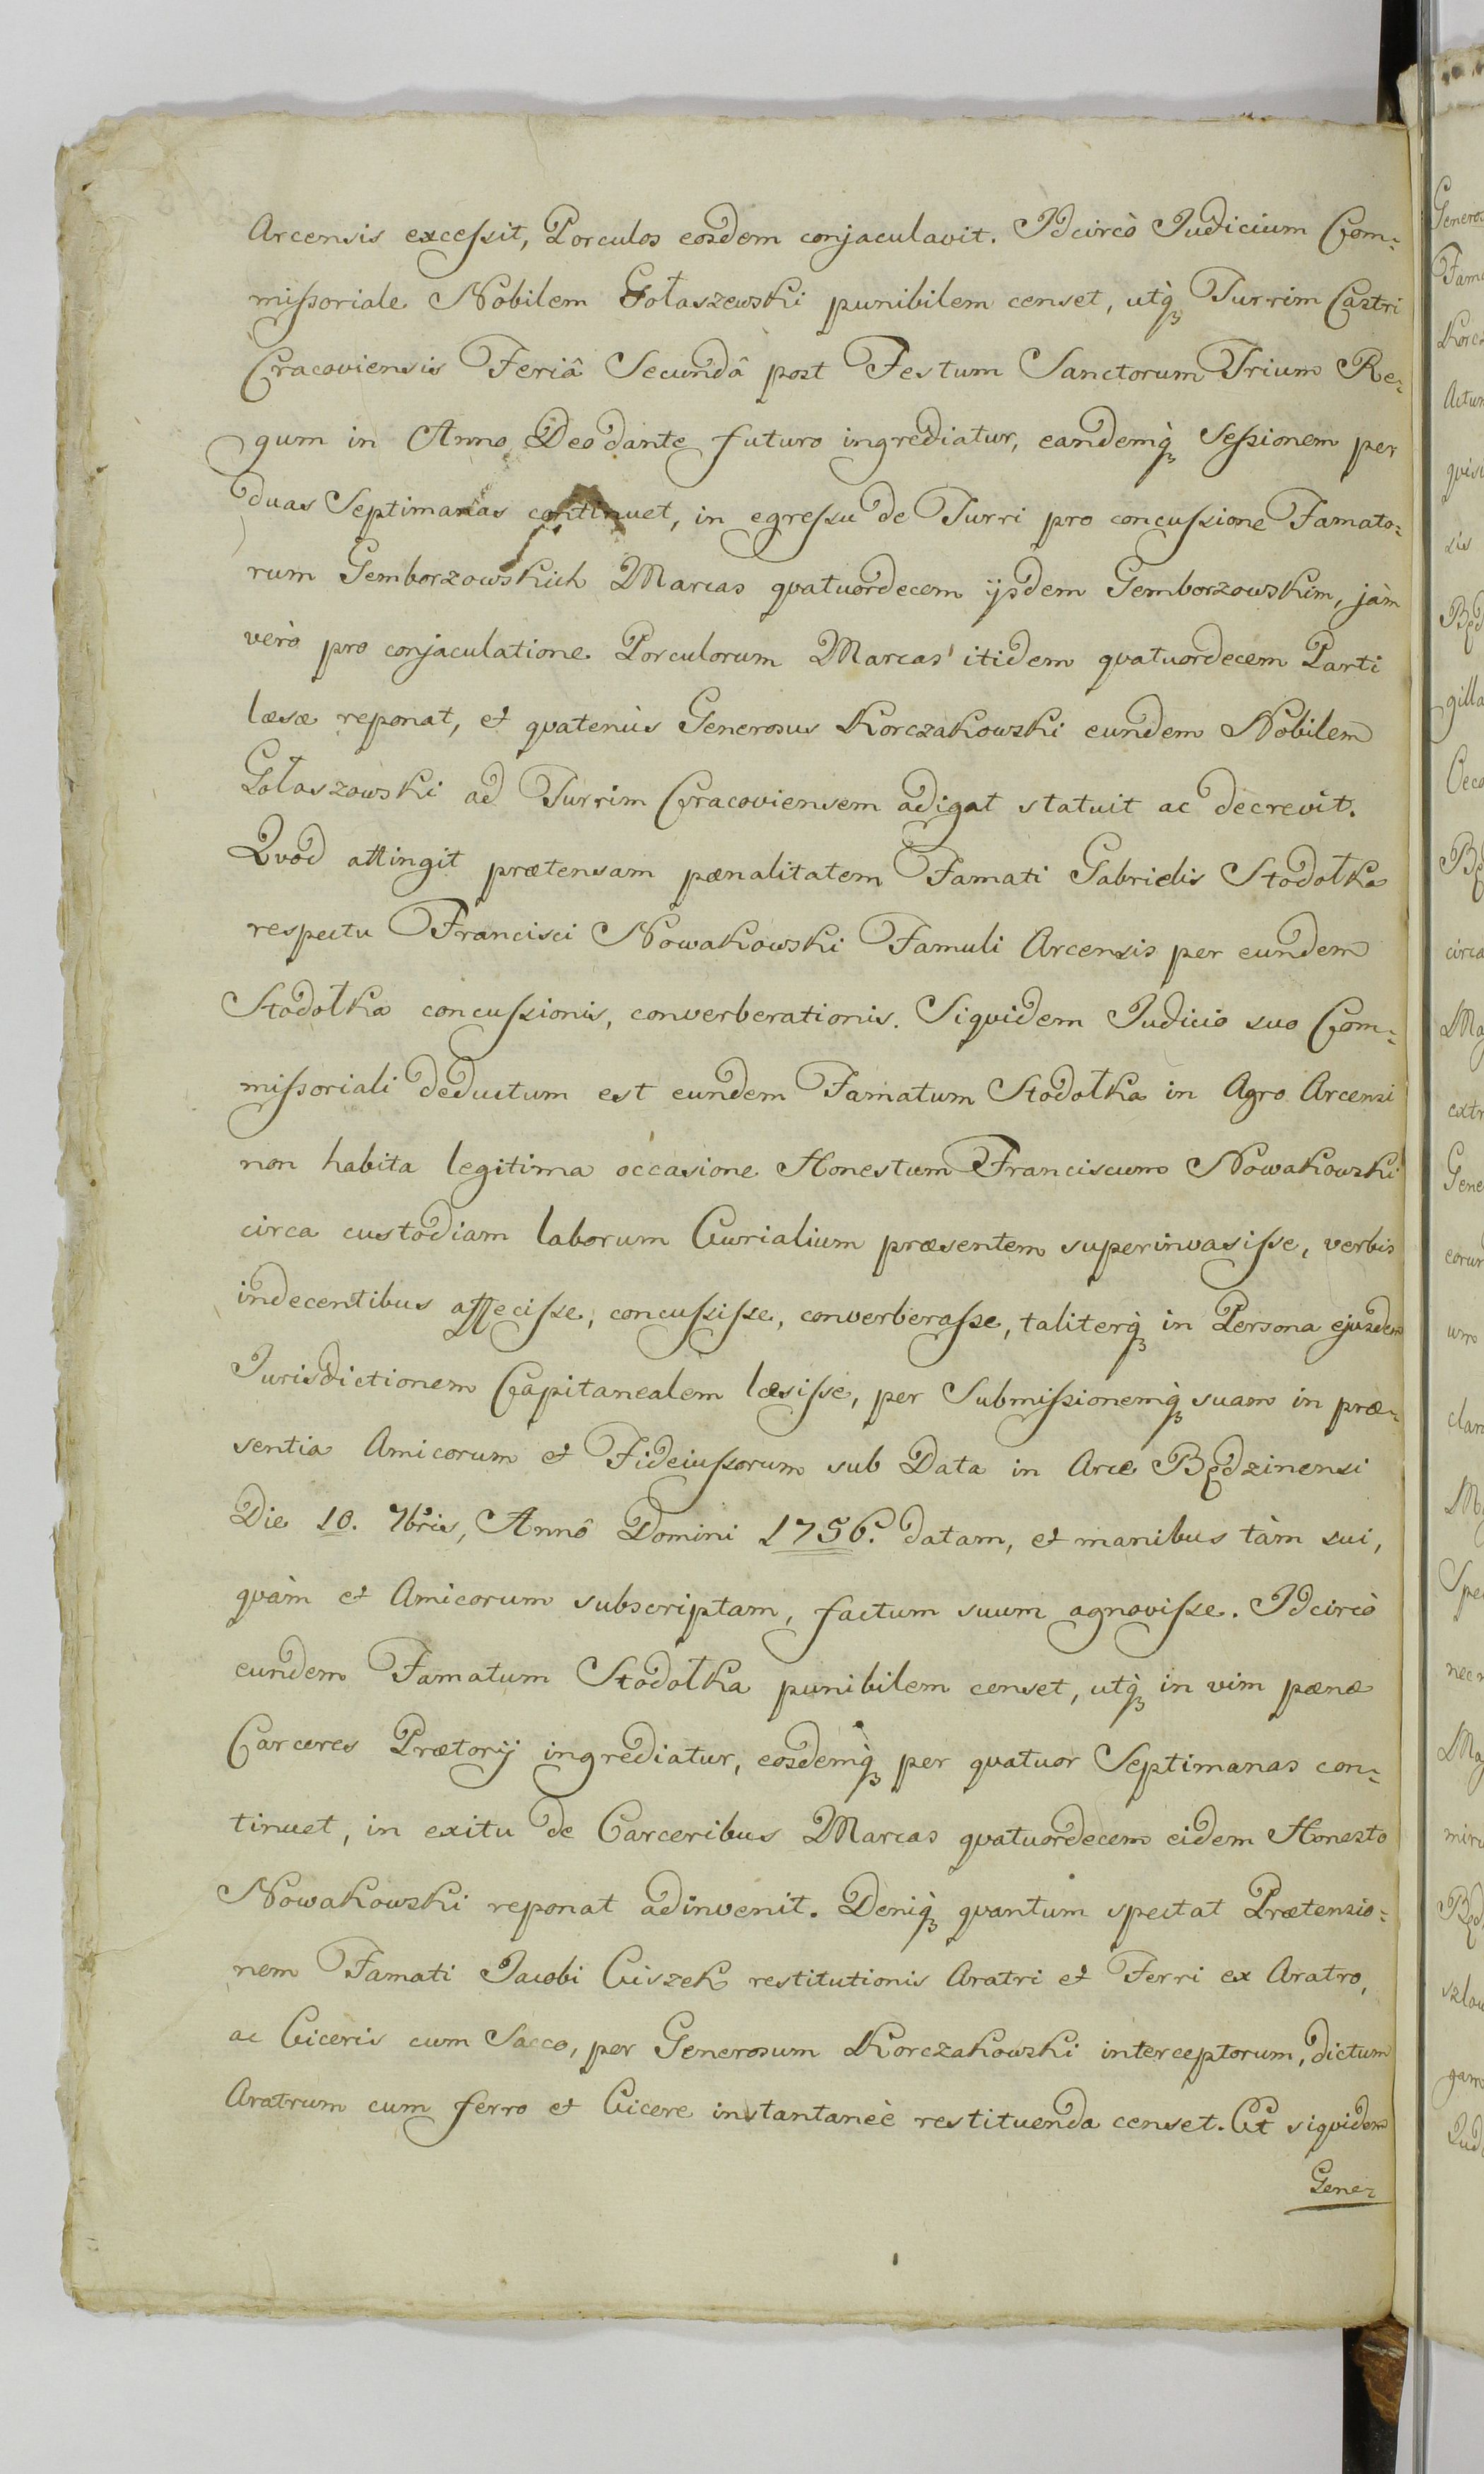 Arcensis excessit, Porculos eosdem conjaculavit. Idcircò Judicium Com=
missoriale Nobilem Gołaszewski punibilem censet, utq́ Turrim Castri
Cracoviensis Feriâ Secundâ post Festum Sanctorum Trium Re=
gum in Anno Deo dante futuro ingrediatur, eandemq́ Sessionem per
duas Septimanas continuet, in egressu de Turri pro concussione Famato=
rum Gemborzowskich Marcas quatuordecem ijsdem Gemborzowskim, jàm
verò pro conjaculatione Porculorum Marcas itidem quatuordecem Parti
læsæ reponat, et quatenùs Generosus Korczakowski eundem Nobilem
Gołaszowski ad Turrim Cracoviensem adigat statuit ac decrevit.
Quod attingit prætensam pænalitatem Famati Gabrielis Stodołka
respectu Francisci Nowakowski Famuli Arcensis per eundem
Stodołka concussionis, converberationis. Siquidem Judicio suo Com=
missoriali deductum est eundem Famatum Stodołka in Agro Arcensi
non habita legitima occasione Honestum Franciscum Nowakowski
circa custodiam laborum Curialium præsentem superinvasisse, verbis
indecentibus affecisse, concussisse, converberasse, taliterq́ in Persona ejusdem
Jurisdictionem Capitanealem læsisse, per Submissionemq́ suam in præ=
sentia Amicorum et Fideiussorum sub Data in Arce Będzinensi
Die 10. 7bris, Annô Domini 1756. datam, et manibus tàm sui,
quàm et Amicorum subscriptam, factum suum agnovisse. Idcircò
eundem Famatum Stodołka punibilem censet, utq́ in vim pænæ
Carceres Prætorij ingrediatur, eosdemq́ per quatuor Septimanas con=
tinuet, in exitu de Carceribus Marcas quatuordecem eidem Honesto
Nowakowski reponat adinvenit. Deniq́ quantum spectat Prætensio=
nem Famati Jacobi Ciszek restitutionis Aratri et Ferri ex Aratro,
ac Ciceris cum Sacco, per Generosum Korczakowski interceptorum, dictum
Aratrum cum ferro et Cicere instantaneè restituenda censet. Et siquidem
Gene=